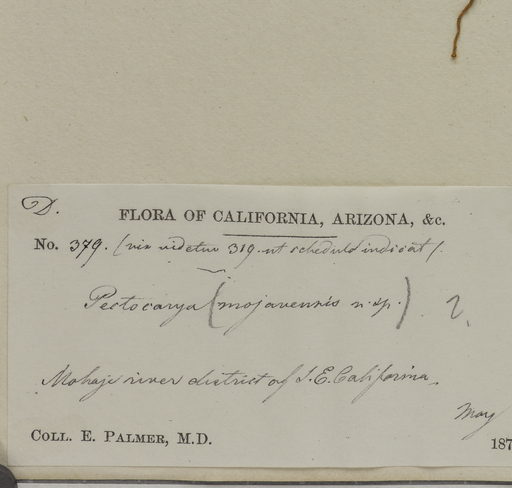 D.
FLORA OF CALIFORNIA, ARIZONA, &c.
No. 379. (vix videtur 319 ut schedula indicat).
Pectocarya (mojavensis n. sp.). ?
Mohaje river district of S. E. California.
May
COLL. E. PALMER, M.D.
187